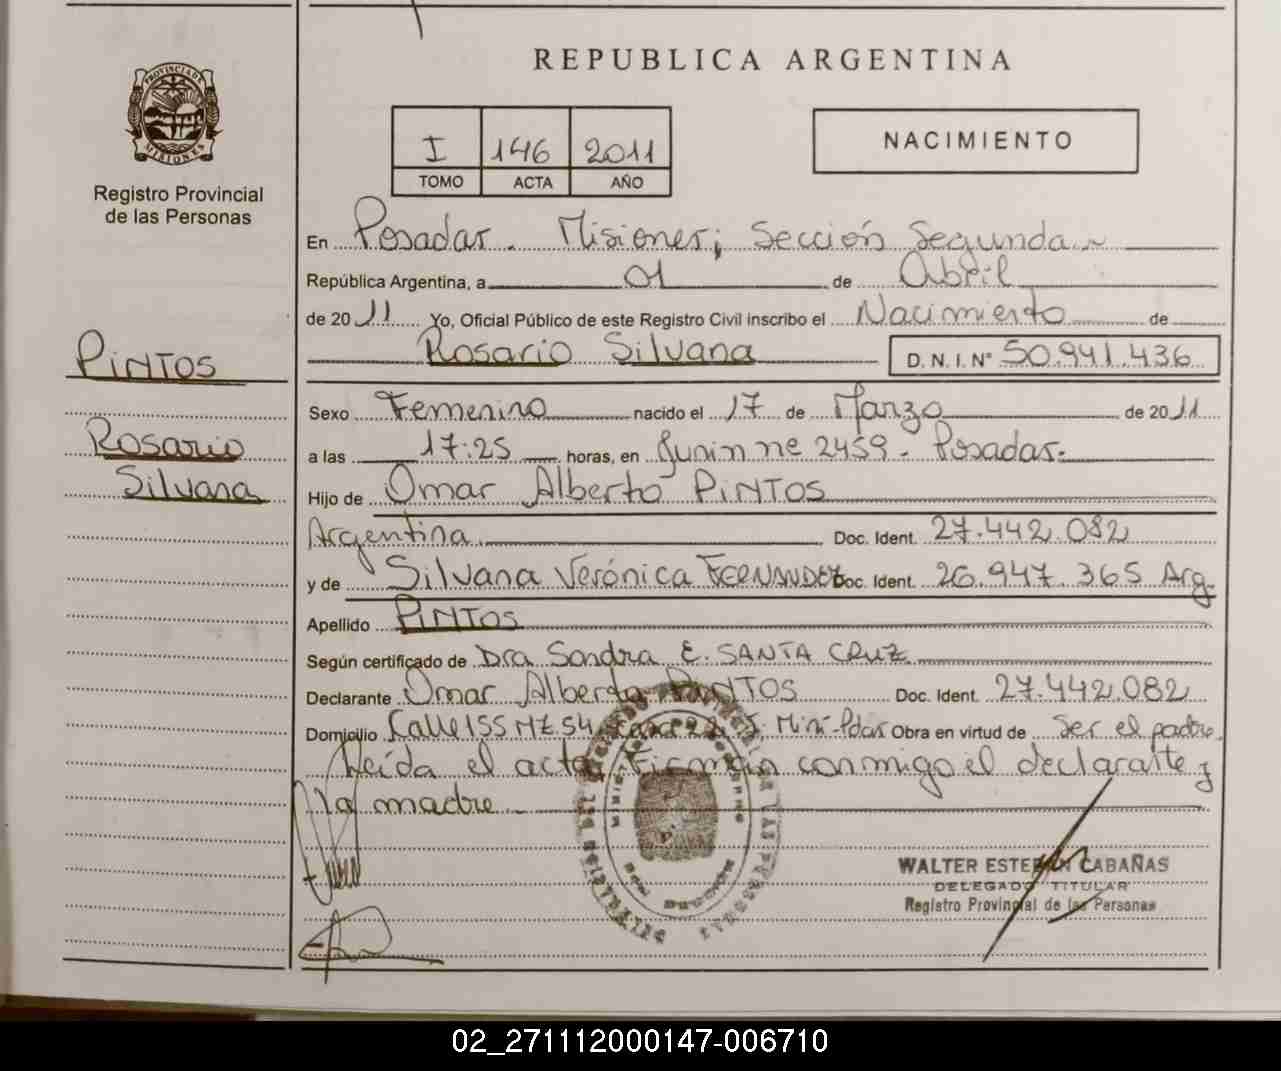 REPUBLICA ARGENTINA
PROVINCIA DE MISIONES
Registro Provincial
de las Personas
I 146 2011
TOMO ACTA AÑO
NACIMIENTO
En Posadas. Misiones; Sección Segunda
República Argentina, a 01 de Abril
de 2011 Yo, Oficial Público de este Registro Civil inscribo el Nacimiento de
Rosario Silvana D. N. I. Nº 50.941.436
PINTOS
Rosario
Silvana
Sexo Femenino nacido el 17 de Marzo de 2011
a las 17:25 horas, en Junin ne 2459 - Posadas.
Hijo de Omar Alberto PINTOS
Argentina. Doc. Ident. 27.442.082
y de Silvana Verónica FERNANDEZ Doc. Ident. 26.947.365 Arg.
Apellido PINTOS
Según certificado de Dra Sandra E. SANTA CRUZ
Declarante Omar Alberto PINTOS Doc. Ident. 27.442.082
Domicilio Calle 155 MZ.54 Obra en virtud de Ser el padre
Leída el acta, Firman conmigo el declarante y
la madre
WALTER ESTEBAN CABAÑAS
DELEGADO TITULAR
Registro Provincial de las Personas
02_271112000147-006710